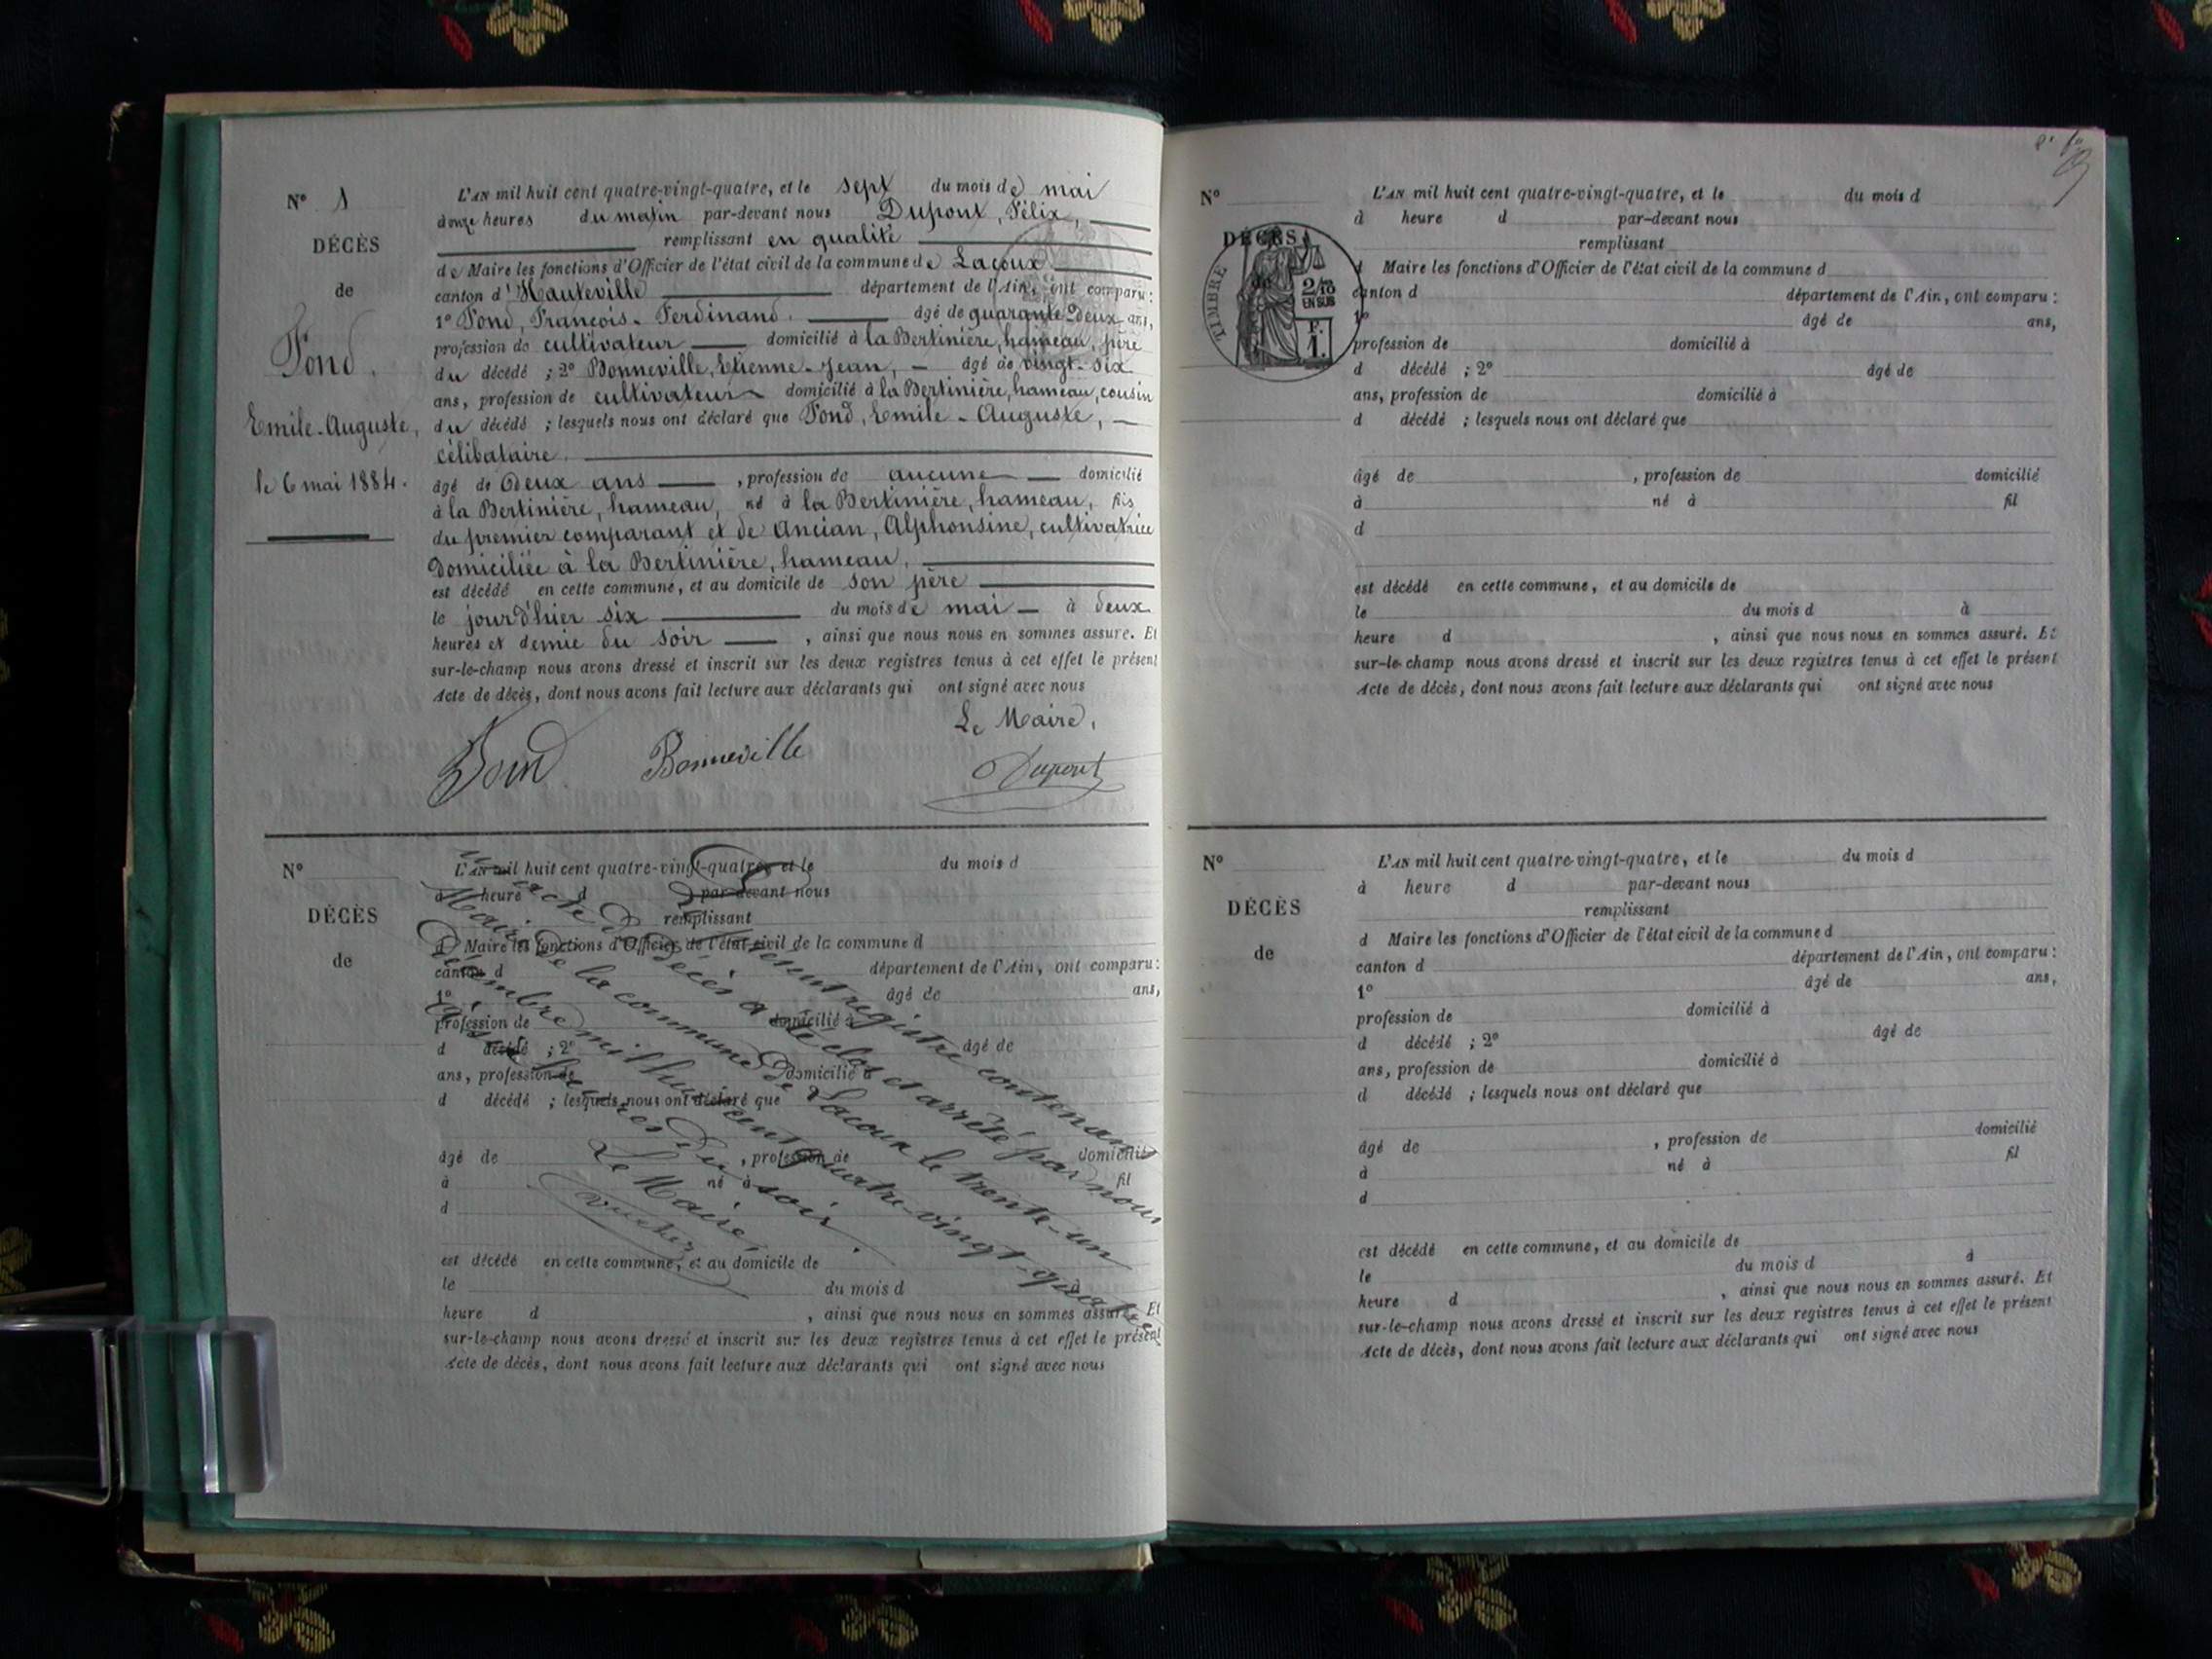 N° 1
DÉCÈS
de
Fond,
Emile-Auguste,
le 6 mai 1884.
L'AN mil huit cent quatre-vingt-quatre, et le sept du mois de mai
à onze heures du matin par-devant nous Dupont, Félix,
remplissant en qualité
de Maire les fonctions d'Officier de l'état civil de la commune de Lacoux
canton d'Hauteville département de l'Ain, ont comparu :
1° Fond, François-Ferdinand, âgé de quarante deux ans,
profession de cultivateur domicilié à la Bertinière, hameau, père
du décédé ; 2° Bonneville, Etienne-Jean, âgé de vingt-six
ans, profession de cultivateur domicilié à la Bertinière, hameau, cousin
du décédé ; lesquels nous ont déclaré que Fond, Emile-Auguste,
célibataire.
âgé de deux ans, profession de aucune domicilié
à la Bertinière, hameau, né à la Bertinière, hameau, fils
du premier comparant et de Ancian, Alphonsine, cultivatrice
domiciliée à la Bertinière, hameau,
est décédé en cette commune, et au domicile de son père
le jourd'hier six du mois de mai à deux
heures et demie du soir, ainsi que nous nous en sommes assuré. Et
sur-le-champ nous avons dressé et inscrit sur les deux registres tenus à cet effet le présent
Acte de décès, dont nous avons fait lecture aux déclarants qui ont signé avec nous
Le Maire,
Fond Bonneville Dupont
N°
DÉCÈS
de
L'AN mil huit cent quatre-vingt-quatre, et le du mois d
à heure d par-devant nous
remplissant
d Maire les fonctions d'Officier de l'état civil de la commune d
canton d département de l'Ain, ont comparu :
1° âgé de ans,
profession de domicilié à
d décédé ; 2° âgé de
ans, profession de domicilié à
d décédé ; lesquels nous ont déclaré que
âgé de , profession de domicilié
à né à fil
d
est décédé en cette commune, et au domicile de
le du mois d à
heure d , ainsi que nous nous en sommes assuré. Et
sur-le-champ nous avons dressé et inscrit sur les deux registres tenus à cet effet le présent
Acte de décès, dont nous avons fait lecture aux déclarants qui ont signé avec nous
présent registre contenant
un acte de décès a été clos et arrêté par nous
Maire de la commune de Lacoux le trente-un
décembre mil huit cent quatre-vingt-quatre
à heures du soir.
Le Maire,
N°
DÉCÈS
TIMBRE
2/10
EN SUS
F.
1.
L'AN mil huit cent quatre-vingt-quatre, et le du mois d
à heure d par-devant nous
remplissant
d Maire les fonctions d'Officier de l'état civil de la commune d
canton d département de l'Ain, ont comparu :
1° âgé de ans,
profession de domicilié à
d décédé ; 2° âgé de
ans, profession de domicilié à
d décédé ; lesquels nous ont déclaré que
âgé de , profession de domicilié
à né à fil
d
est décédé en cette commune, et au domicile de
le du mois d à
heure d , ainsi que nous nous en sommes assuré. Et
sur-le-champ nous avons dressé et inscrit sur les deux registres tenus à cet effet le présent
Acte de décès, dont nous avons fait lecture aux déclarants qui ont signé avec nous
N°
DÉCÈS
de
L'AN mil huit cent quatre-vingt-quatre, et le du mois d
à heure d par-devant nous
remplissant
d Maire les fonctions d'Officier de l'état civil de la commune d
canton d département de l'Ain, ont comparu :
1° âgé de ans,
profession de domicilié à
d décédé ; 2° âgé de
ans, profession de domicilié à
d décédé ; lesquels nous ont déclaré que
âgé de , profession de domicilié
à né à fil
d
est décédé en cette commune, et au domicile de
le du mois d à
heure d , ainsi que nous nous en sommes assuré. Et
sur-le-champ nous avons dressé et inscrit sur les deux registres tenus à cet effet le présent
Acte de décès, dont nous avons fait lecture aux déclarants qui ont signé avec nous